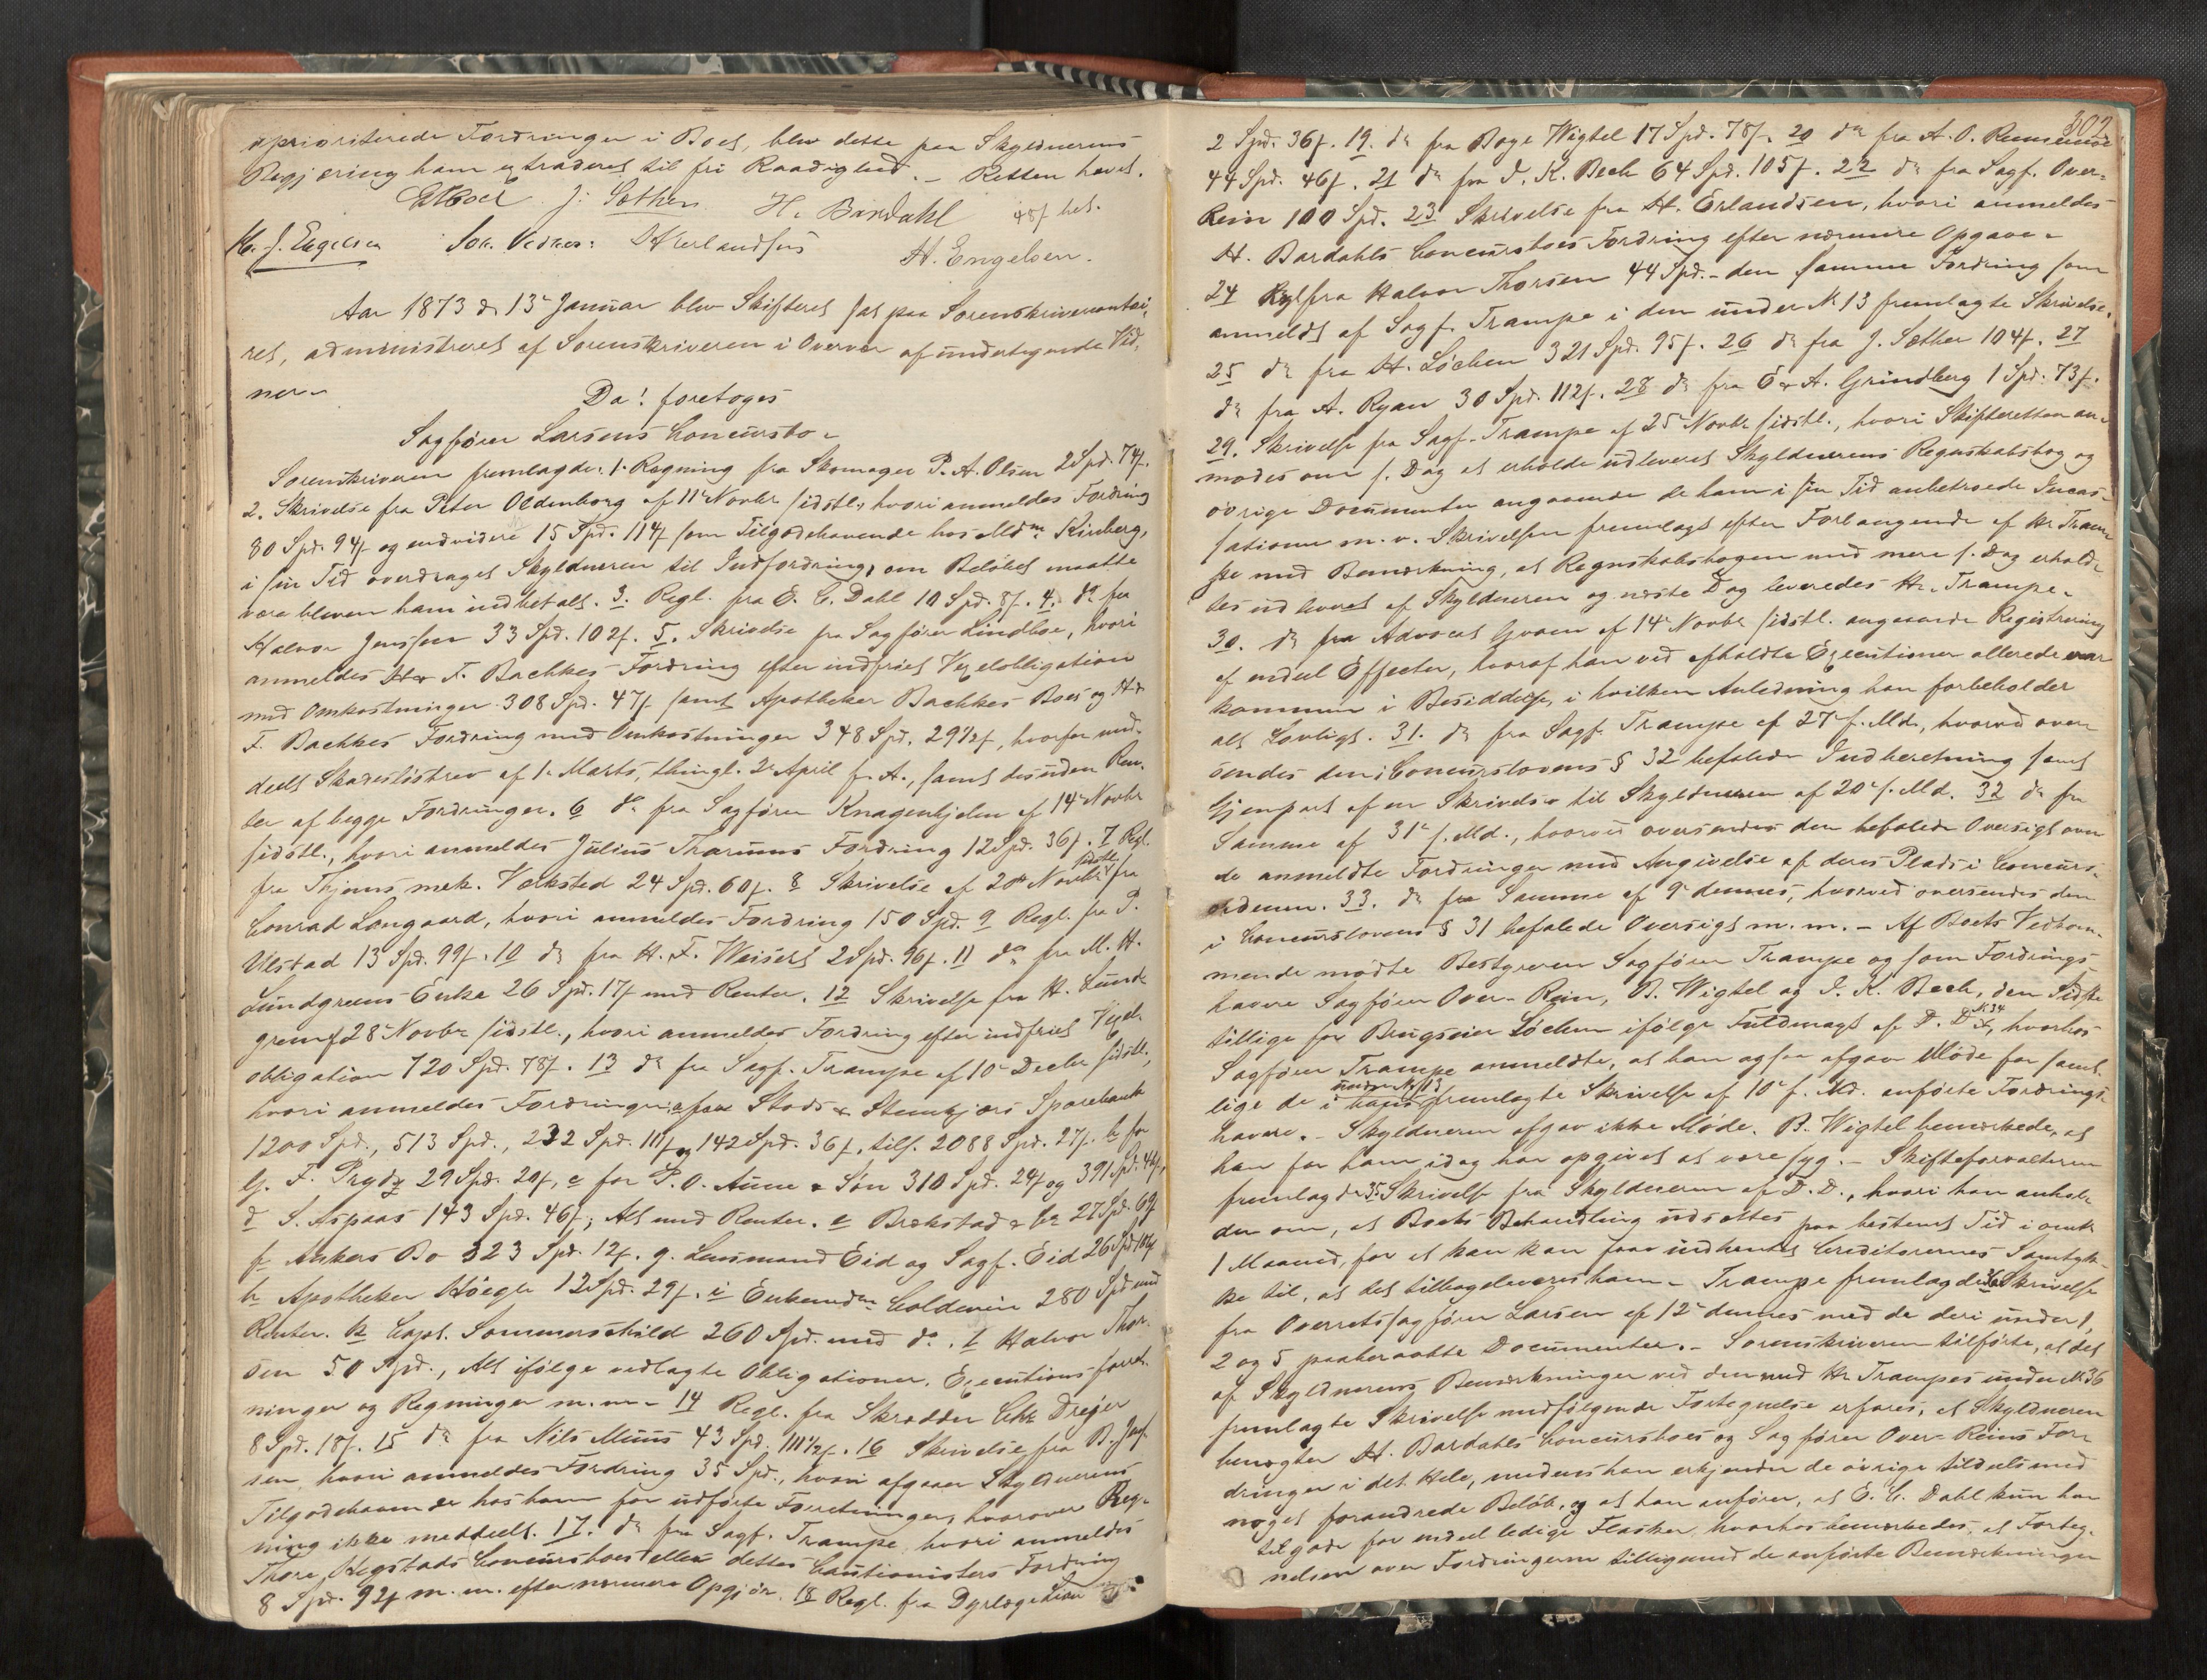 uprioriterede Fordringer i Boet, blev dette paa Skyldnerens
Begjæring ham extraderet til fri Raadighed. – Retten hævet.
J. Sæther H. Bardahl 48 f bet.
Chr. J. Engelsen H Erlandsen
H. Engelsen.
Aar 1873 d 13de Januar blev Skifteret sat paa Sorenskrivercontoi-
ret, administreret af Sorenskriveren i Overvær af undertegnede Vid-
ner –
Da! foretoges
Sagfører Larsens Concursbo –
Sorenskriveren fremlagde: 1. Regning fra Skomager P. A. Olsen 2 Spd. 74 f.
2. Skrivelse fra Peter Oldenborg af 11te Novbr sidstl., hvori anmeldes Fordring
80 Spd. 94 f og endvidere 15 Spd. 114 f som Tilgodehavende hos Mdm Kirkberg,
i sin Tid overdraget Skyldneren til Indfordring, om Beløbet maatte
være bleven ham indbetalt. 3. Regl. fra E. C. Dahl 10 Spd. 8 f. 4. do fra
Halvor Jenssen 33 Spd. 102 f. 5. Skrivelse fra Sagfører Lindboe, hvori
anmeldes Hr F. Bachkes Fordring efter indfriet Vexelobligation
med Omkostninger 308 Spd. 47 f samt Apotheker Bachkes Boes og Hr
F. Bachkes Fordring med Omkostninger 348 Spd. 29 1/2 f, hvorfor med-
deelt Skadesløsbrev af 1. Marts, thingl. 2. April f. A., samt desuden Ren-
ter af begge Fordringer. 6 do fra Sagfører Knagenhjelm af 14de Novbr
sidstl., hvori anmeldes Julius Thorums Fordring 12 Spd. 36 f. 7 Regl.
fra Throns mek. Værksted 24 Spd. 60 f. 8 Skrivelse af 20de Novbr sidstl. fra
Conrad Langaard, hvori anmeldes Fordring 150 Spd. 9 Regl. fra P.
Ulstad 13 Spd. 99 f. 10 do fra H. F. Weisert 2 Spd. 96 f. 11 do fra M. H.
Lundgreens Enke 26 Spd. 17 f med Renter. 12 Skrivelse fra H. Lund-
green af 28 Novbr sidstl., hvori anmeldes Fordring efter indfriet Vexel-
obligation 720 Spd. 78 f. 13 do fra Sagf. Trampe af 10de Decbr sidstl.,
hvori anmeldes Fordringer: a for Stods & Stenkjærs Sparebank
1200 Spd., 513 Spd., 232 Spd. 111 f og 142 Spd. 36 f. tils. 2088 Spd. 27 f. b for
G. F. Prydz 29 Spd. 20 f, c for P. O. Aune & Søn 310 Spd. 24 f og 391 Spd. 44 f,
d S. Aspaas 143 Spd. 46 f, Alt med Renter. e Brækstad & Co 27 Spd. 69
f Ankers Bo 323 Spd. 12 f. g. Lensmand Eid og Sagf. Eid 26 Spd
h Apotheker Höegh 12 Spd. 29 f. i Enkemdm Coldevin 280 Spd med
Renter. k Capt. Sommerschild 260 Spd. med do. l Halvor Thor-
sen 50 Spd., Alt ifølge vedlagte Obligationer, Executionsforret-
ninger og Regninger m. m – 14 Regl. fra Skrædder Chr Dreyer
8 Spd. 18 f. 15 do fra Nils Muus 43 Spd. 111 1/2 f. 16 Skrivelse fra B. Jen-
sen, hvori anmeldes Fordring 35 Spd., hvori afgaaer Skyldnerens
Tilgodehavende hos ham for udførte Forretninger, hvorover Reg-
ning ikke meddeelt. 17. do fra Sagf. Trampe, hvori anmeldes
Thore Hegstads Concursboes eller dettes Cautionisters Fordring
8 Spd. 92 f m. m. efter nærmere Opgjör. 18 Regl. fra Dyrlæge
302
2 Spd. 36 f. 19. do fra Boye Wigtel 17 Spd. 78 f. 20 do fra A. O. Remsunde
44 Spd. 46 f. 21 do fra I. K. Bech 64 Spd. 105 f. 22 do fra Sagf. Over-
Rein 100 Spd. 23 Skrivelse fra H. Erlandsen, hvori anmeldes
H. Bardahls Concursboes Fordring efter nærmere Opgave –
24 Rgl fra Halvor Thorsen 44 Spd. – den samme Fordring som
anmeldt af Sagf. Trampe i den under No 13 fremlagte Skrivelse.
25 do fra H. Løchen 321 Spd. 95 f. 26 do fra J. Sæther 104 f. 27
do fra A. Ryan 30 Spd. 112 f. 28 do fra E & A. Grindberg 1 Spd. 73 f.
29. Skrivelse fra Sagf. Trampe af 25de Novbr sidstl., hvori Skifteretten an-
modes om s. Dag at erholde udleveret Skyldnerens Regnskabsbog og
øvrige Documenter angaaende de ham i sin Tid anbetroede Incas-
sationer m. v. Skrivelsen fremlagt efter Forlangende af Hr Tram-
pe med Bemærkning, at Regnskabsbogen med mere s. Dag erhold-
tes udleveret af Skyldneren og næste Dag leveredes Hr. Trampe –
30. do fra Advocat Gram af 14de Novbr sidstl. angaaende Registrering
af endeel Effecter, hvoraf han ved afholdte Executioner allerede var
kommen i Besiddelse, i hvilken Anledning han forbeholder
alt Lovligt. 31. do fra Sagf. Trampe af 27de f. Md., hvorved over-
sendes den i Concurslovens § 32 befalede Indberetning samt
Gjenpart af en Skrivelse til Skyldneren af 20de f. Md. 32 do fra
Samme af 31te f. Md., hvorved oversendes den befalede Oversigt over
de anmeldte Fordringer med Angivelse af deres Plads i Concurs-
ordenen. 33. do fra Samme af 9de dennes, hvorved oversendes den
i Concurslovens § 31 befalede Oversigt m. m. – Af Boets Vedkom-
mende mødte Bestyreren Sagfører Trampe og som Fordrings-
havere Sagfører Over-Rein, B. Wigtel og I. K. Bech, den Sidste
tillige for Brugseier Løchen ifølge Fuldmagt af D. D. No 34, hvorhos
Sagfører Trampe anmeldte, at han ogsaa afgav Møde for samt-
lige de i hans under No 13 fremlagte Skrivelse af 10de f. Md. anførte Fordrings-
havere. – Skyldneren afgav ikke Møde. B. Wigtel bemærkede, at
han for ham idag har opgivet at være syg. – Skifteforvalteren
fremlagde 35. Skrivelse fra Skyldneren af D. D., hvori han anhol-
der om, at Boets Behandling udsættes paa bestemt Tid i omtr
1 Maaned, for at han kan faae indhentet Creditorernes Samtyk-
ke til, at det tilbageleveres ham – Trampe fremlagde 36 Skrivelse
fra Overretssagfører Larsen af 12te dennes med de deri under 1,
2 og 5 paaberaabte Documenter. – Sorenskriveren tilførte, at det
af Skyldnerens Bemærkninger ved den med Hr Trampes under No 36
fremlagte Skrivelse medfølgende Fortegnelse erfares, at Skyldneren
benegter H. Bardahls Concursboes og Sagfører Over-Reins For-
dringer i det Hele, medens han erkjender de øvrige tildeels med
noget forandrede Beløb, og at han anfører, at E. C. Dahl kun har
tilgode for endeel ledige Flasker, hvorhos bemærkedes, at Forteg-
nelsen over Fordringerne tilligemed de anførte Bemærkninger